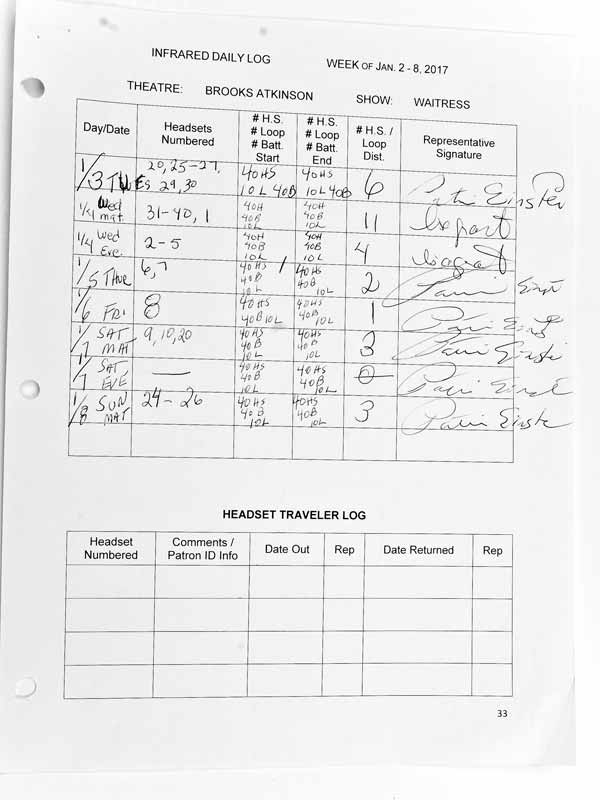 INFRARED DAILY LOG
WEEK OF JAN. 2 - 8, 2017
THEATRE: BROOKS ATKINSON SHOW: WAITRESS
Day/Date Headsets Numbered # H.S. # Loop # Batt. Start # H.S. # Loop # Batt. End # H.S. / Loop Dist. Representative Signature
1/3 TUES 20, 25-27, 29, 30 40HS 10L 40B 40HS 10L 40B 6
1/4 Wed mat 31-40, 1 40H 40B 10L 40H 40B 10L 11
1/4 Wed Eve. 2-5 40H 40B 10L 40H 40B 10L 4
1/5 THUR 6, 7 40HS 40B 10L 40HS 40B 10L 2
1/6 FRI 8 40HS 40B 10L 40HS 40B 10L 1
1/7 SAT MAT 9, 10, 20 40HS 40B 10L 40HS 40B 10L 3
1/7 SAT EVE — 40HS 40B 10L 40HS 40B 10L 0
1/8 SUN MAT 24-26 40HS 40B 10L 40HS 40B 10L 3
HEADSET TRAVELER LOG
Headset Numbered Comments / Patron ID Info Date Out Rep Date Returned Rep
33